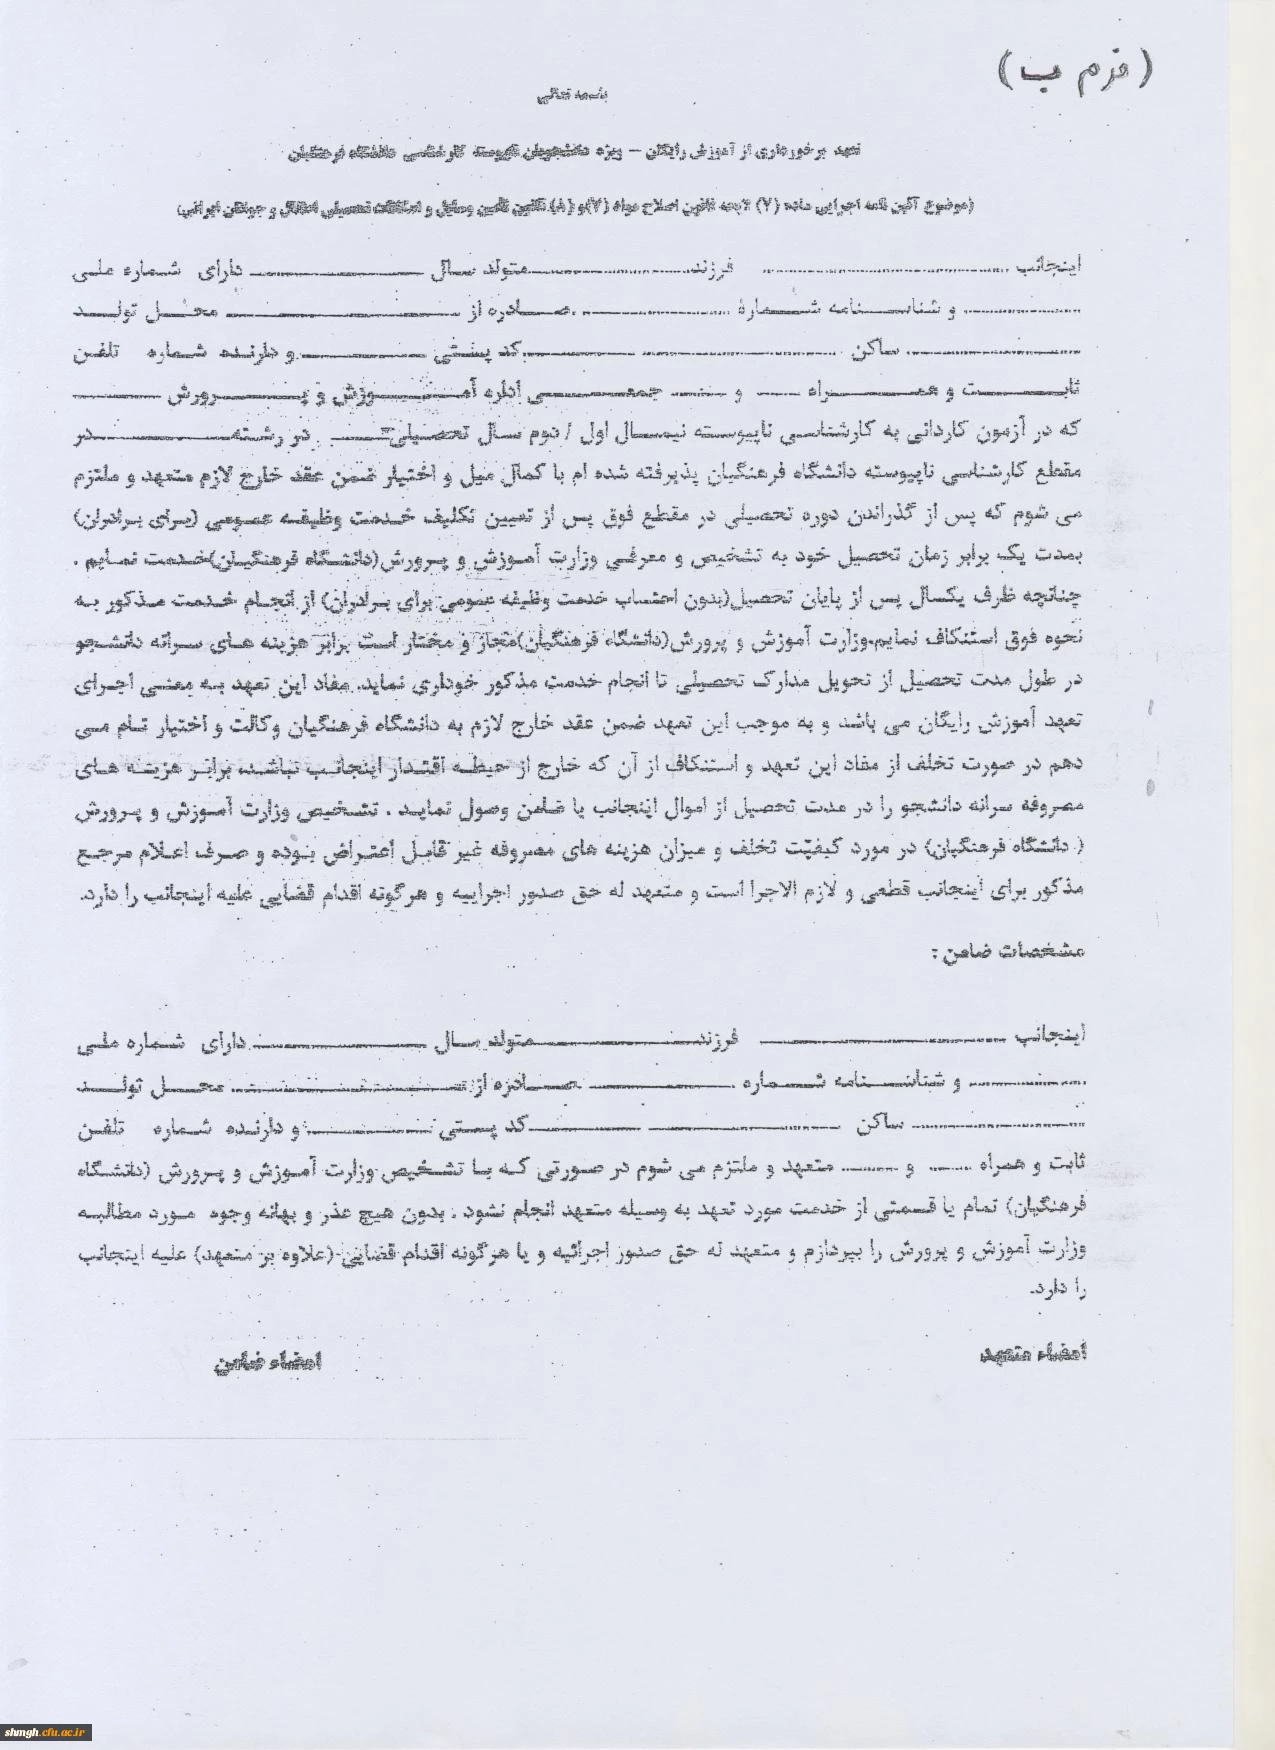 (فرم ب)
باسمه تعالی
تعهد برخورداری از آموزش رایگان – ویژه دانشجویان کارشناسی دانشگاه فرهنگیان
(موضوع آئین نامه اجرایی ماده (7) لایحه قانون اصلاح مواد (7)و (8) قانون تأمین وسایل و امکانات تحصیلی اطفال و جوانان ایرانی)
اینجانب .................... فرزند .................... متولد سال .................... دارای شماره ملی
.................... و شناسنامه شمارۀ .................... صادره از .................... محل تولد
.................... ساکن .................... کد پستی .................... و دارنده شماره تلفن
ثابت و همراه ........ و ........ جمعی اداره آموزش و پرورش ............
که در آزمون کاردانی به کارشناسی ناپیوسته نیمسال اول / دوم سال تحصیلی ........ در رشته ............ در
مقطع کارشناسی ناپیوسته دانشگاه فرهنگیان پذیرفته شده ام با کمال میل و اختیار ضمن عقد خارج لازم متعهد و ملتزم
می شوم که پس از گذراندن دوره تحصیلی در مقطع فوق پس از تعیین تکلیف خدمت وظیفه عمومی (برای برادران)
بمدت یک برابر زمان تحصیل خود به تشخیص و معرفی وزارت آموزش و پرورش(دانشگاه فرهنگیان)خدمت نمایم .
چنانچه ظرف یکسال پس از پایان تحصیل(بدون احتساب خدمت وظیفه عمومی برای برادران) از انجام خدمت مذکور به
نحوه فوق استنکاف نمایم.وزارت آموزش و پرورش(دانشگاه فرهنگیان)مجاز و مختار است برابر هزینه های سرانه دانشجو
در طول مدت تحصیل از تحویل مدارک تحصیلی تا انجام خدمت مذکور خوداری نماید. مفاد این تعهد به معنی اجرای
تعهد آموزش رایگان می باشد و به موجب این تعهد ضمن عقد خارج لازم به دانشگاه فرهنگیان وکالت و اختیار تام می
دهم در صورت تخلف از مفاد این تعهد و استنکاف از آن که خارج از حیطه اقتدار اینجانب نباشد، برابر هزینه های
مصروفه سرانه دانشجو را در مدت تحصیل از اموال اینجانب یا ضامن وصول نماید . تشخیص وزارت آموزش و پرورش
( دانشگاه فرهنگیان) در مورد کیفیّت تخلف و میزان هزینه های مصروفه غیر قابل اعتراض بوده و صرف اعلام مرجع
مذکور برای اینجانب قطعی و لازم الاجرا است و متعهد له حق صدور اجراییه و هرگونه اقدام قضایی علیه اینجانب را دارد.
مشخصات ضامن :
اینجانب .................... فرزند .................... متولد سال .................... دارای شماره ملی
.................... و شناسنامه شماره .................... صادره از .................... محل تولد
.................... ساکن .................... کد پستی .................... و دارنده شماره تلفن
ثابت و همراه ........ و ........ متعهد و ملتزم می شوم در صورتی که با تشخیص وزارت آموزش و پرورش (دانشگاه
فرهنگیان) تمام یا قسمتی از خدمت مورد تعهد به وسیله متعهد انجام نشود . بدون هیچ عذر و بهانه وجوه مورد مطالبه
وزارت آموزش و پرورش را بپردازم و متعهد له حق صدور اجرائیه و یا هرگونه اقدام قضایی (علاوه بر متعهد) علیه اینجانب
را دارد.
امضاء متعهد
امضاء ضامن
shmgh.cfu.ac.ir